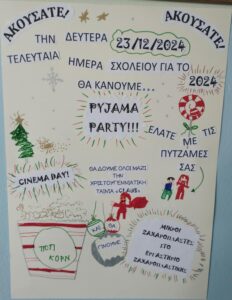 ΑΚΟΥΣΑΤΕ!
ΑΚΟΥΣΑΤΕ!
ΤΗΝ ΔΕΥΤΕΡΑ 23/12/2024
ΤΕΛΕΥΤΑΙΑ ΗΜΕΡΑ ΣΧΟΛΕΙΟΥ ΓΙΑ ΤΟ 2024
ΘΑ ΚΑΝΟΥΜΕ...
PYJAMA
PARTY!!!
ΕΛΑΤΕ ΜΕ ΤΙΣ
ΠΥΤΖΑΜΕΣ
ΣΑΣ
CINEMA DAY!
ΘΑ ΔΟΥΜΕ ΟΛΟΙ ΜΑΖΙ
ΤΗΝ
ΧΡΙΣΤΟΥΓΕΝΝΙΑΤΙΚΗ
ΤΑΙΝΙΑ «CLAUS»
ΠΟΠ
ΚΟΡΝ
ΚΑΙ ΘΑ
ΓΙΝΟΥΜΕ
ΜΙΚΡΟΙ
ΣΤΟ
ΕΡΓΑΣΤΗΡΙΟ
ΖΑΧΑΡΟΠΛΑΣΤΙΚΗΣ